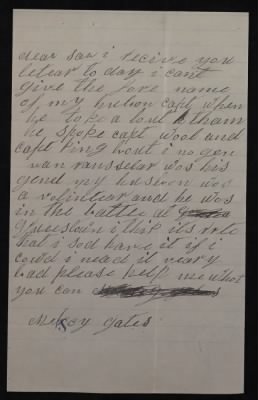 dear sar i receive you
letear to day i cant
give the fore name
of my husbon capt when
he to be a bout tham
he spoke capt wool and
capt King bout i no gen
van ranselar was his
genel my husbon was
a volintear and he was
in the battle at
Queenstown i think its rite
that i sod have it if i
cowd i nead it veary
bad please help me what
you can
Mercy gates